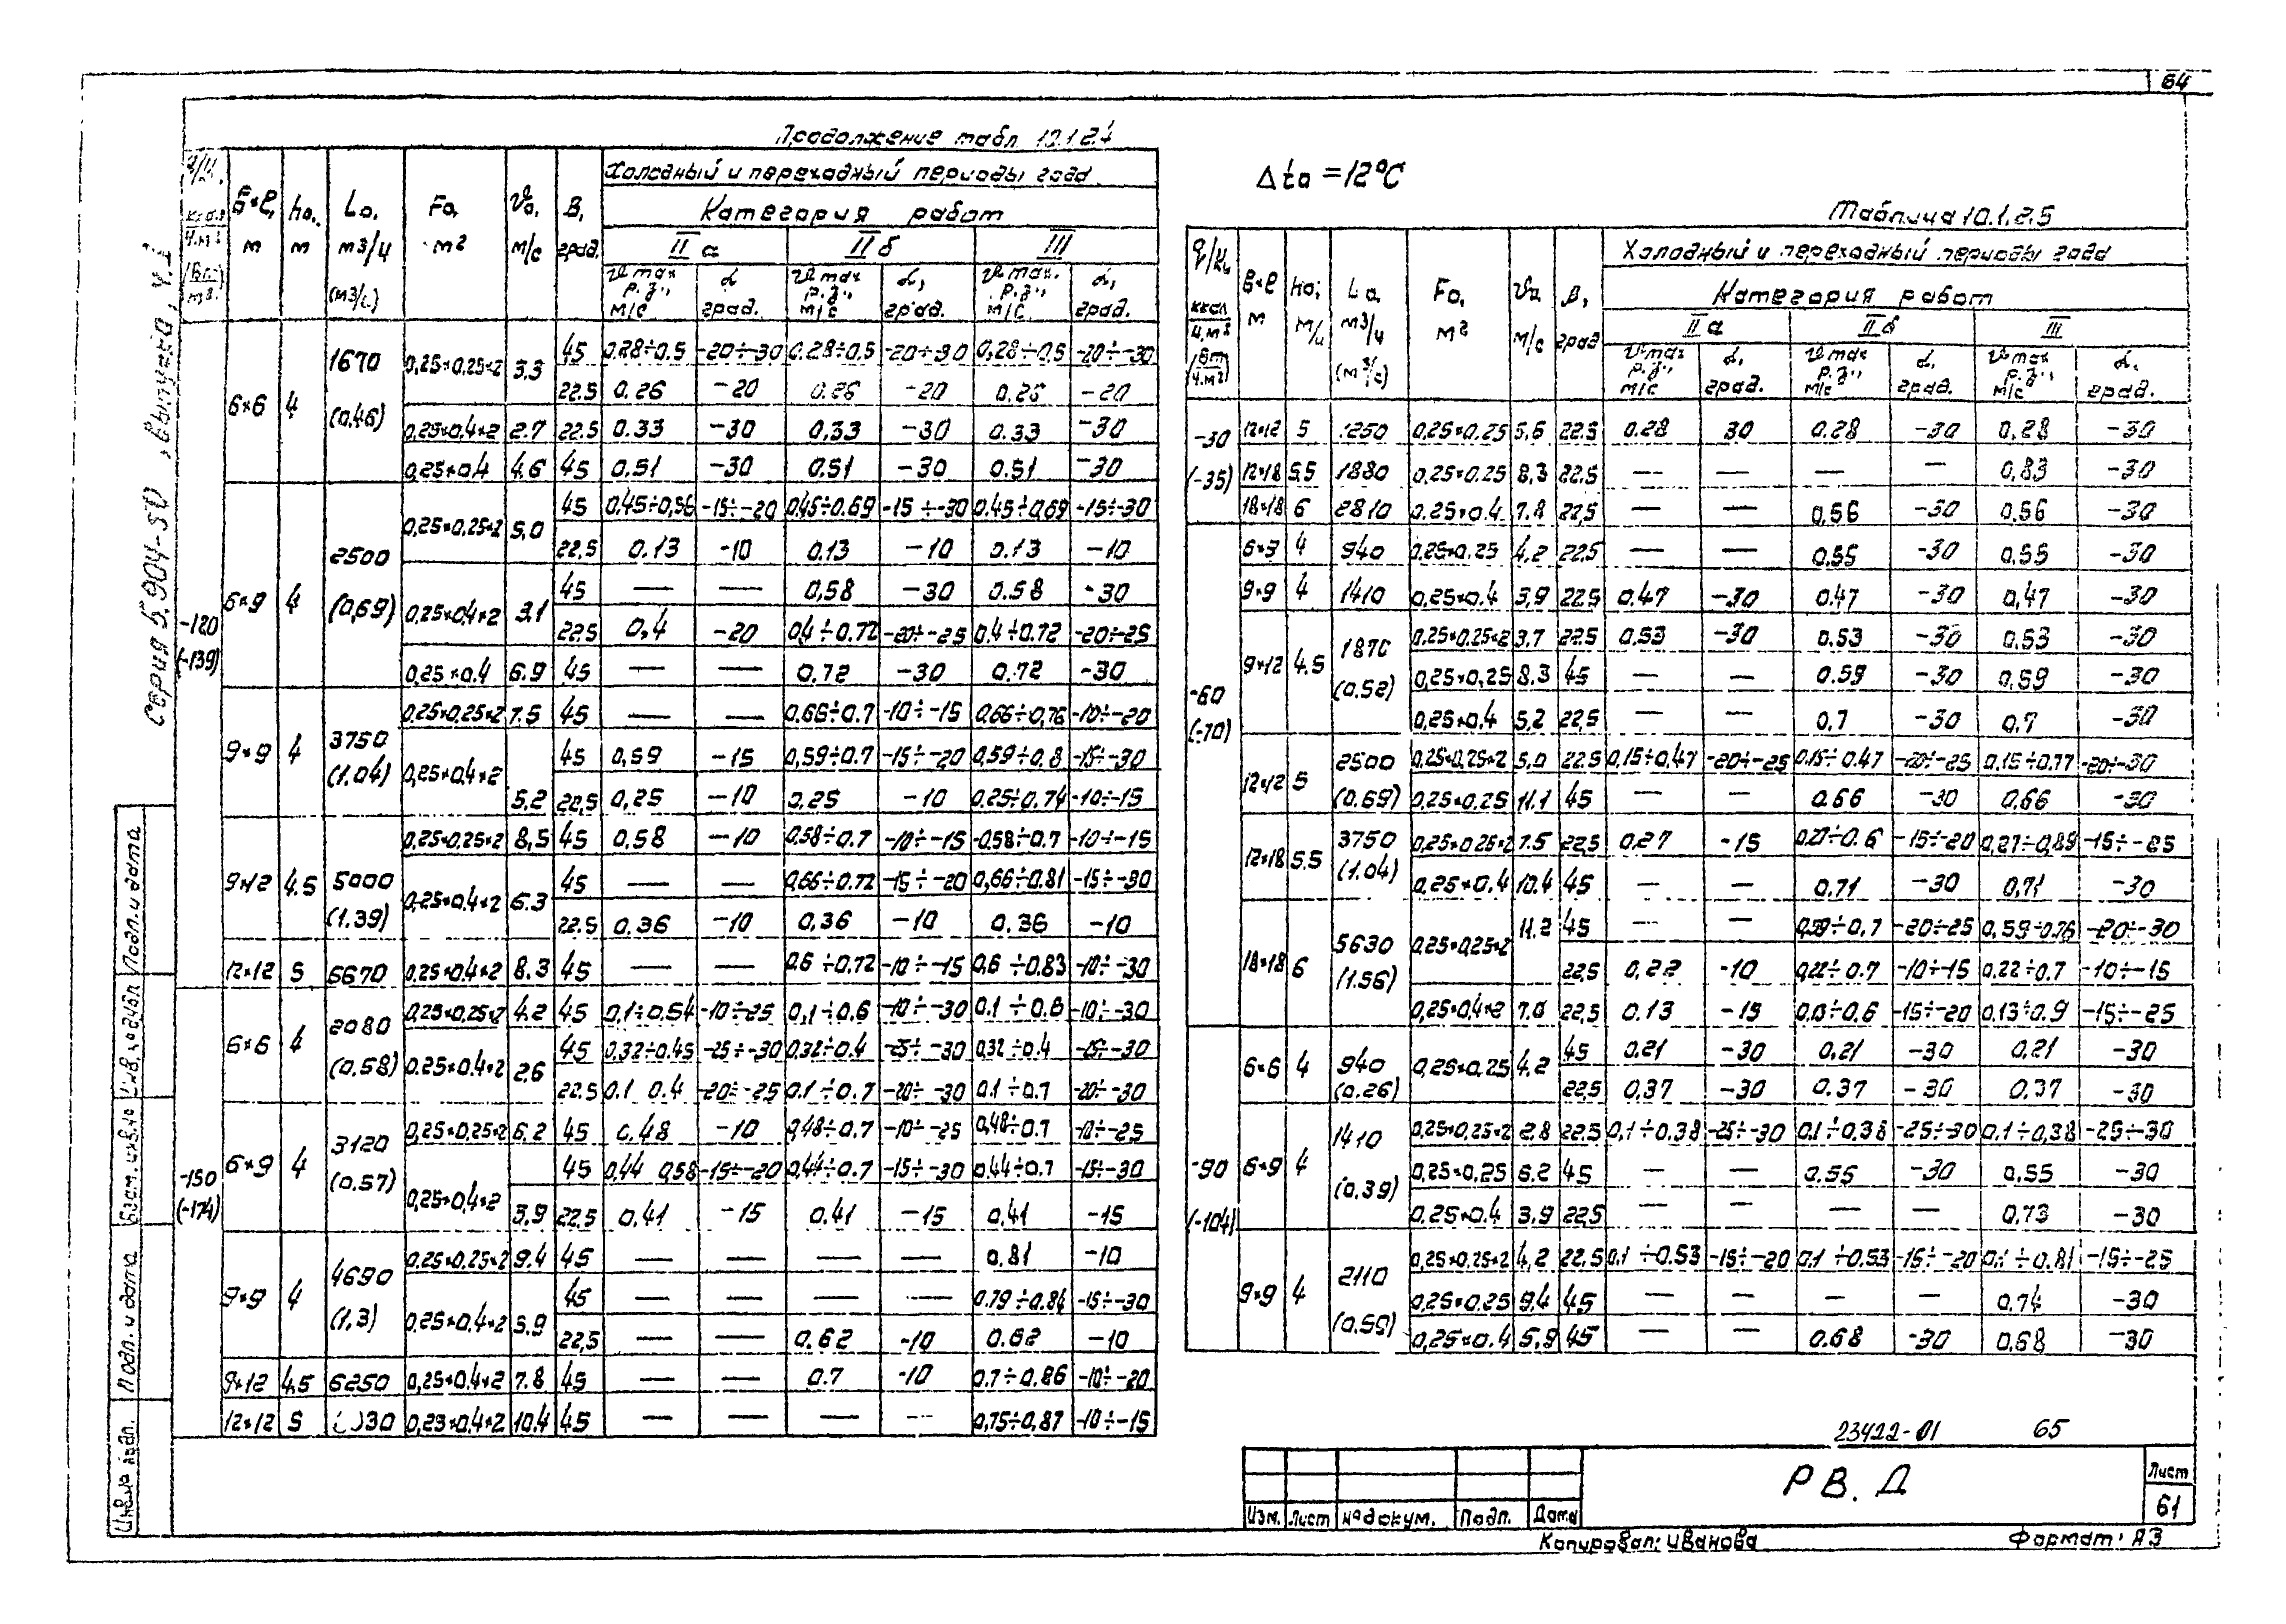 64
Серия 5.904-50, выпуск 0, ч.1
Продолжение табл. 10.1.2.4
q/н, ккал/ч.м² /Вт/м²/ | B×l, м | h0, м | L0, м3/ч (м3/с) | F0, м² | V0, м/с | β, град. | Холодный и переходный периоды года
Категория работ
IIа | IIб | III
Vmax р.з., м/с | α град. | Vmax р.з., м/с | α, град. | Vmax р.з., м/с | α, град.
-120 (-139)
6×6 | 4 | 1670 (0,46) | 0,25×0,25×2 | 3.3 | 45 | 0.28÷0.5 | -20÷-30 | 0.28÷0.5 | -20÷30 | 0,28÷0,5 | -20÷-30
22.5 | 0.26 | -20 | 0.26 | -20 | 0.26 | -20
0,25×0,4×2 | 2.7 | 22.5 | 0.33 | -30 | 0,33 | -30 | 0.33 | -30
0,25×0.4 | 4.6 | 45 | 0.51 | -30 | 0.51 | -30 | 0.51 | -30
6×9 | 4 | 2500 (0,69) | 0,25×0,25×2 | 5.0 | 45 | 0,45÷0,56 | -15÷-20 | 0,45÷0.69 | -15÷-30 | 0.45÷0,69 | -15÷30
22,5 | 0.13 | -10 | 0.13 | -10 | 0.13 | -10
0,25×0,4×2 | 3.1 | 45 | — | — | 0,58 | -30 | 0.58 | -30
22.5 | 0,4 | -20 | 0,4÷0.72 | -20÷-25 | 0.4÷0.72 | -20÷25
0,25×0.4 | 6.9 | 45 | — | — | 0.72 | -30 | 0.72 | -30
9×9 | 4 | 3750 (1.04) | 0,25×0,25×2 | 7.5 | 45 | — | — | 0.66÷0.7 | -10÷-15 | 0,66÷0,76 | -10÷-20
0,25×0,4×2 | 5.2 | 45 | 0,59 | -15 | 0,59÷0.7 | -15÷-20 | 0,59÷0,8 | -15÷-30
22,5 | 0,25 | -10 | 0.25 | -10 | 0.25÷0,74 | -10÷-15
9×12 | 4.5 | 5000 (1.39) | 0,25×0,25×2 | 8,5 | 45 | 0,58 | -10 | 0.58÷0.7 | -10÷-15 | 0.58÷0.7 | -10÷-15
0,25×0,4×2 | 6.3 | 45 | — | — | 0,66÷0.72 | -15÷-20 | 0,66÷0.81 | -15÷-30
22.5 | 0.36 | -10 | 0,36 | -10 | 0.36 | -10
12×12 | 5 | 6670 | 0.25×0.4×2 | 8.3 | 45 | — | — | 0.6÷0.72 | -10÷-15 | 0,6÷0,83 | -10÷-30
-150 (-174)
6×6 | 4 | 2080 (0,58) | 0,25×0,25×2 | 4.2 | 45 | 0,1÷0,54 | -10÷25 | 0,1÷0.6 | -10÷-30 | 0.1÷0.6 | -10÷-30
0.25×0.4×2 | 2.6 | 45 | 0,32÷0.45 | -25÷-30 | 0.32÷0.4 | -25÷-30 | 0,32÷0.4 | -25÷-30
22.5 | 0.1 0.4 | -20÷-25 | 0.1÷0.7 | -20÷-30 | 0.1÷0.7 | -20÷-30
6×9 | 4 | 3120 (0.57) | 0,25×0,25×2 | 6.2 | 45 | 0,48 | -10 | 0,48÷0.7 | -10÷-25 | 0,48÷0.7 | -10÷-25
0,25×0,4×2 | 3.9 | 45 | 0,44 0,58 | -15÷-20 | 0,44÷0.7 | -15÷-30 | 0.44÷0.7 | -15÷-30
22.5 | 0,41 | -15 | 0.41 | -15 | 0,41 | -15
9×9 | 4 | 4690 (1,3) | 0.25×0.25×2 | 9.4 | 45 | — | — | — | — | 0.81 | -10
0,25×0,4×2 | 5.9 | 45 | — | — | — | — | 0.79÷0.84 | -15÷-30
22,5 | — | — | 0.62 | -10 | 0.62 | -10
9×12 | 4.5 | 6250 | 0,25×0,4×2 | 7.8 | 45 | — | — | 0.7 | -10 | 0.7÷0.86 | -10÷-20
12×12 | 5 | 0,25×0.4×2 | 10.4 | 45 | — | — | — | — | 0,75÷0,87 | -10÷-15
Δt0 = 12°C
Таблица 10.1.2.5
q/н, ккал/ч.м² /Вт/ч.м²/ | B×l м | h0, м | L0 м3/ч (м3/с) | F0, м² | V0, м/с | β, град | Холодный и переходный периоды года
Категория работ
IIа | IIб | III
Vmax р.з., м/с | α, град. | Vmax р.з., м/с | α, град. | Vmax р.з., м/с | α, град.
-30 (-35)
12×12 | 5 | 1250 | 0,25×0.25 | 5,6 | 22.5 | 0.28 | 30 | 0.28 | -30 | 0,28 | -30
12×18 | 5,5 | 1880 | 0,25×0.25 | 8,3 | 22.5 | — | — | — | — | 0,83 | -30
18×18 | 6 | 2810 | 0.25×0.4 | 7.8 | 22,5 | — | — | 0,56 | -30 | 0,56 | -30
-60 (-70)
6×9 | 4 | 940 | 0,25×0.25 | 4,2 | 22,5 | — | — | 0.55 | -30 | 0,55 | -30
9×9 | 4 | 1410 | 0,25×0.4 | 3,9 | 22.5 | 0.47 | -30 | 0.47 | -30 | 0,47 | -30
9×12 | 4.5 | 1870 (0.52) | 0,25×0.25×2 | 3.7 | 22.5 | 0,53 | -30 | 0.53 | -30 | 0.53 | -30
0,25×0,25 | 8.3 | 45 | — | — | 0.59 | -30 | 0,59 | -30
0,25×0.4 | 5,2 | 22,5 | — | — | 0,7 | -30 | 0,7 | -30
12×12 | 5 | 2500 (0.69) | 0,25×0,25×2 | 5,0 | 22.5 | 0,15÷0,47 | -20÷-25 | 0.15÷0.47 | -20÷-25 | 0.15÷0.77 | -20÷-30
0,25×0.25 | 11.1 | 45 | — | — | 0.66 | -30 | 0,66 | -30
12×18 | 5,5 | 3750 (1.04) | 0,25×0.25×2 | 7.5 | 22,5 | 0,27 | -15 | 0,27÷0.6 | -15÷-20 | 0,27÷0,89 | -15÷-25
0,25×0.4 | 10.4 | 45 | — | — | 0,71 | -30 | 0,71 | -30
18×18 | 6 | 5630 (1.56) | 0.25×0,25×2 | 11.2 | 45 | — | — | 0,59÷0,7 | -20÷25 | 0,59÷0.76 | -20÷-30
22,5 | 0,22 | -10 | 0,22÷0.7 | -10÷-15 | 0,22÷0.7 | -10÷-15
0,25×0,4×2 | 7.0 | 22,5 | 0.13 | -15 | 0,13÷0,6 | -15÷-20 | 0,13÷0.9 | -15÷-25
-90 (-104)
6×6 | 4 | 940 (0.26) | 0,25×0,25 | 4.2 | 45 | 0.21 | -30 | 0,21 | -30 | 0,21 | -30
22,5 | 0,37 | -30 | 0.37 | -30 | 0,37 | -30
6×9 | 4 | 1410 (0,39) | 0,25×0,25×2 | 2.8 | 22.5 | 0,1÷0,38 | -25÷-30 | 0,1÷0,38 | -25÷30 | 0,1÷0,38 | -25÷-30
0,25×0,25 | 6.2 | 45 | — | — | 0.55 | -30 | 0,55 | -30
0,25×0.4 | 3.9 | 22,5 | — | — | — | — | 0,73 | -30
9×9 | 4 | 2110 (0.59) | 0,25×0,25×2 | 4,2 | 22,5 | 0,1÷0.53 | -15÷-20 | 0,1÷0.53 | -15÷-20 | 0,1÷0.81 | -15÷-25
0,25×0.25 | 9,4 | 45 | — | — | — | — | 0.74 | -30
0,25×0.4 | 5,9 | 45 | — | — | 0.68 | -30 | 0,68 | -30
23422-01 65
РВ.Д
Лист
61
Изм. Лист № докум. Подп. Дата
Копировал: Иванова Формат: А3
Инв.№ подл. Подп. и дата Взам. инв.№ Инв.№ дубл. Подп. и дата